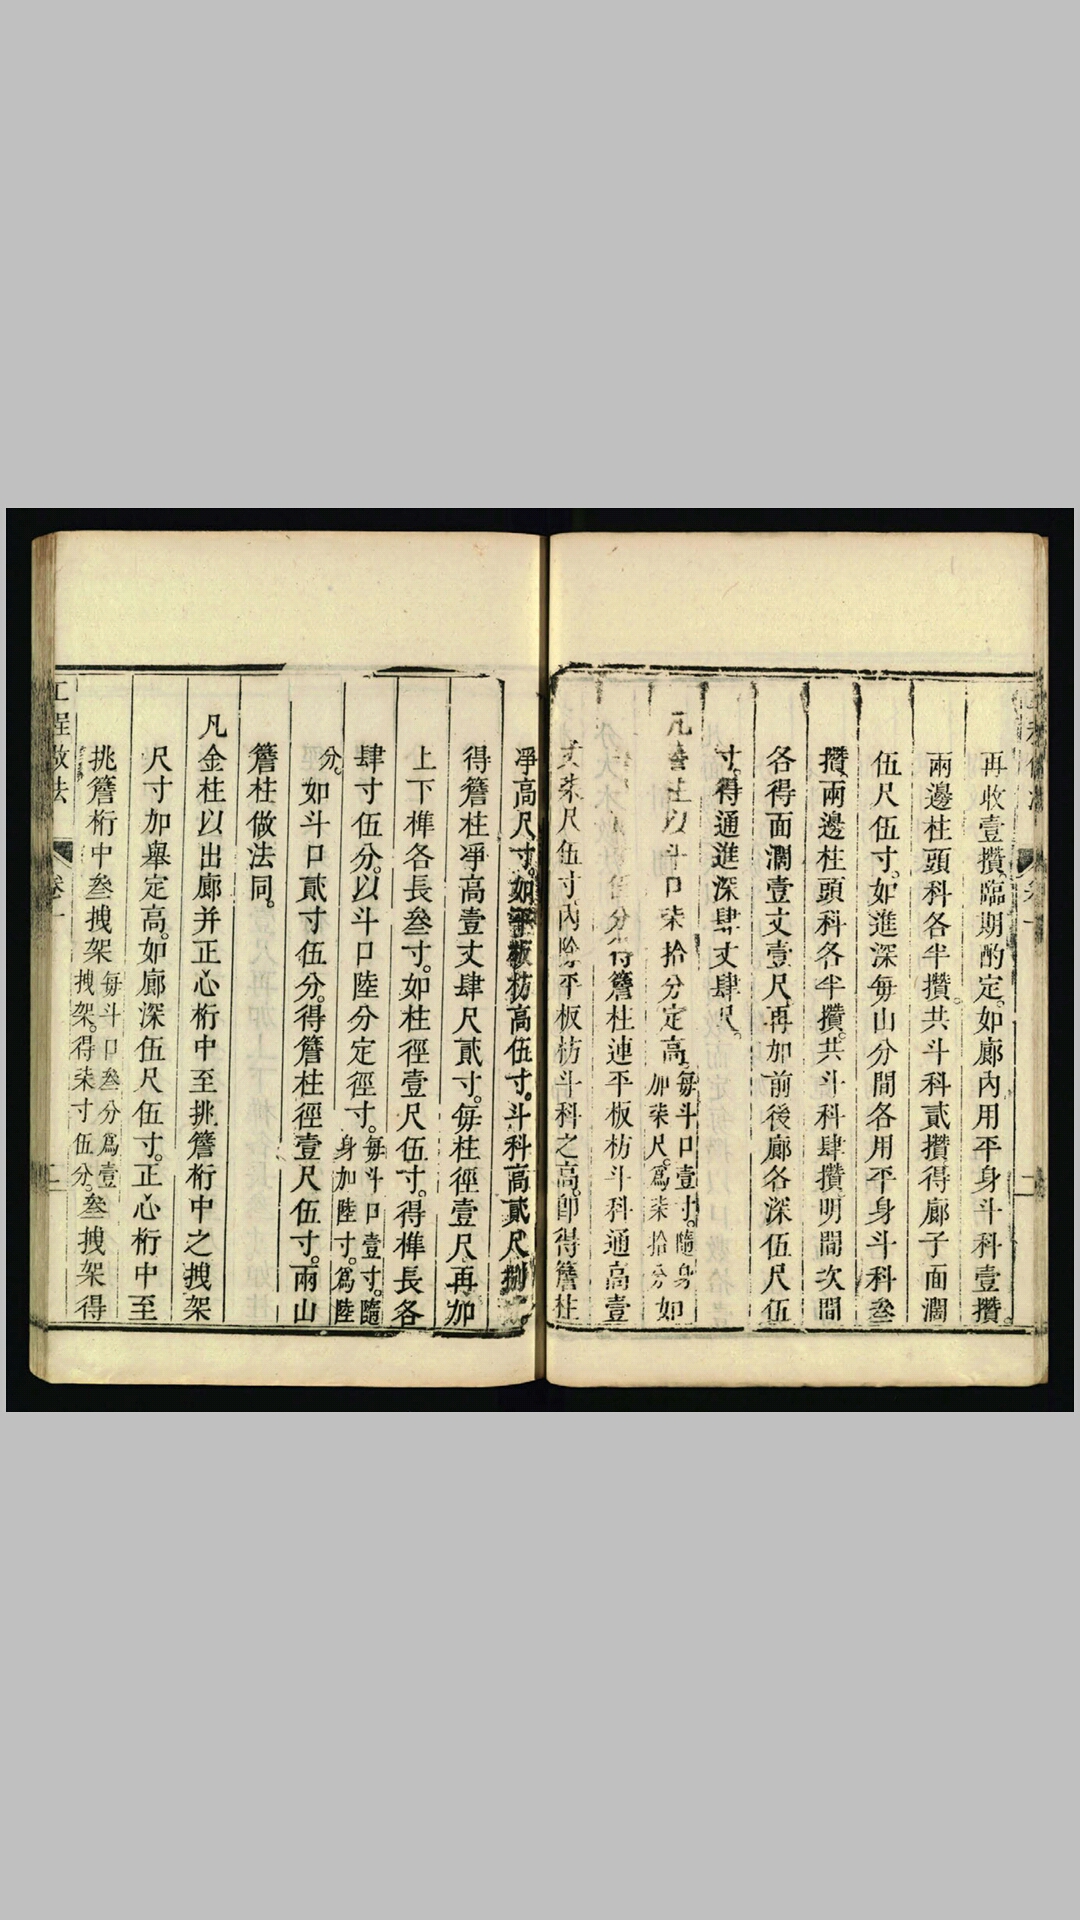 再收壹攢。臨期酌定。如廊內用平身斗科壹攢。
兩邊柱頭科各半攢。共斗科貳攢得廊子面濶
伍尺伍寸。如進深每山分間各用平身斗科叁
攢。兩邊柱頭科各半攢。共斗科肆攢。明間次間
各得面濶壹丈壹尺。再加前後廊各深伍尺伍
寸。得通進深肆丈肆尺。
凡簷柱以斗口柒拾分定高。每斗口壹寸。隨身加柒尺。為柒拾分如
斗口貳寸伍分得簷柱連平板枋斗科通高壹
丈柒尺伍寸。內除平板枋斗科之高。卽得簷柱
淨高尺寸。如平板枋高伍寸。斗科高貳尺捌寸
得簷柱淨高壹丈肆尺貳寸。每柱徑壹尺。再加
上下榫各長叁寸。如柱徑壹尺伍寸。得榫長各
肆寸伍分。以斗口陸分定徑寸。每斗口壹寸。隨身加陸寸。為陸
分。如斗口貳寸伍分。得簷柱徑壹尺伍寸。兩山
簷柱做法同。
凡金柱以出廊并正心桁中至挑簷桁中之拽架
尺寸加舉定高。如廊深伍尺伍寸。正心桁中至
挑簷桁中叁拽架每斗口叁分爲壹拽架。得柒寸伍分。叁拽架得
工程做法 卷一 二